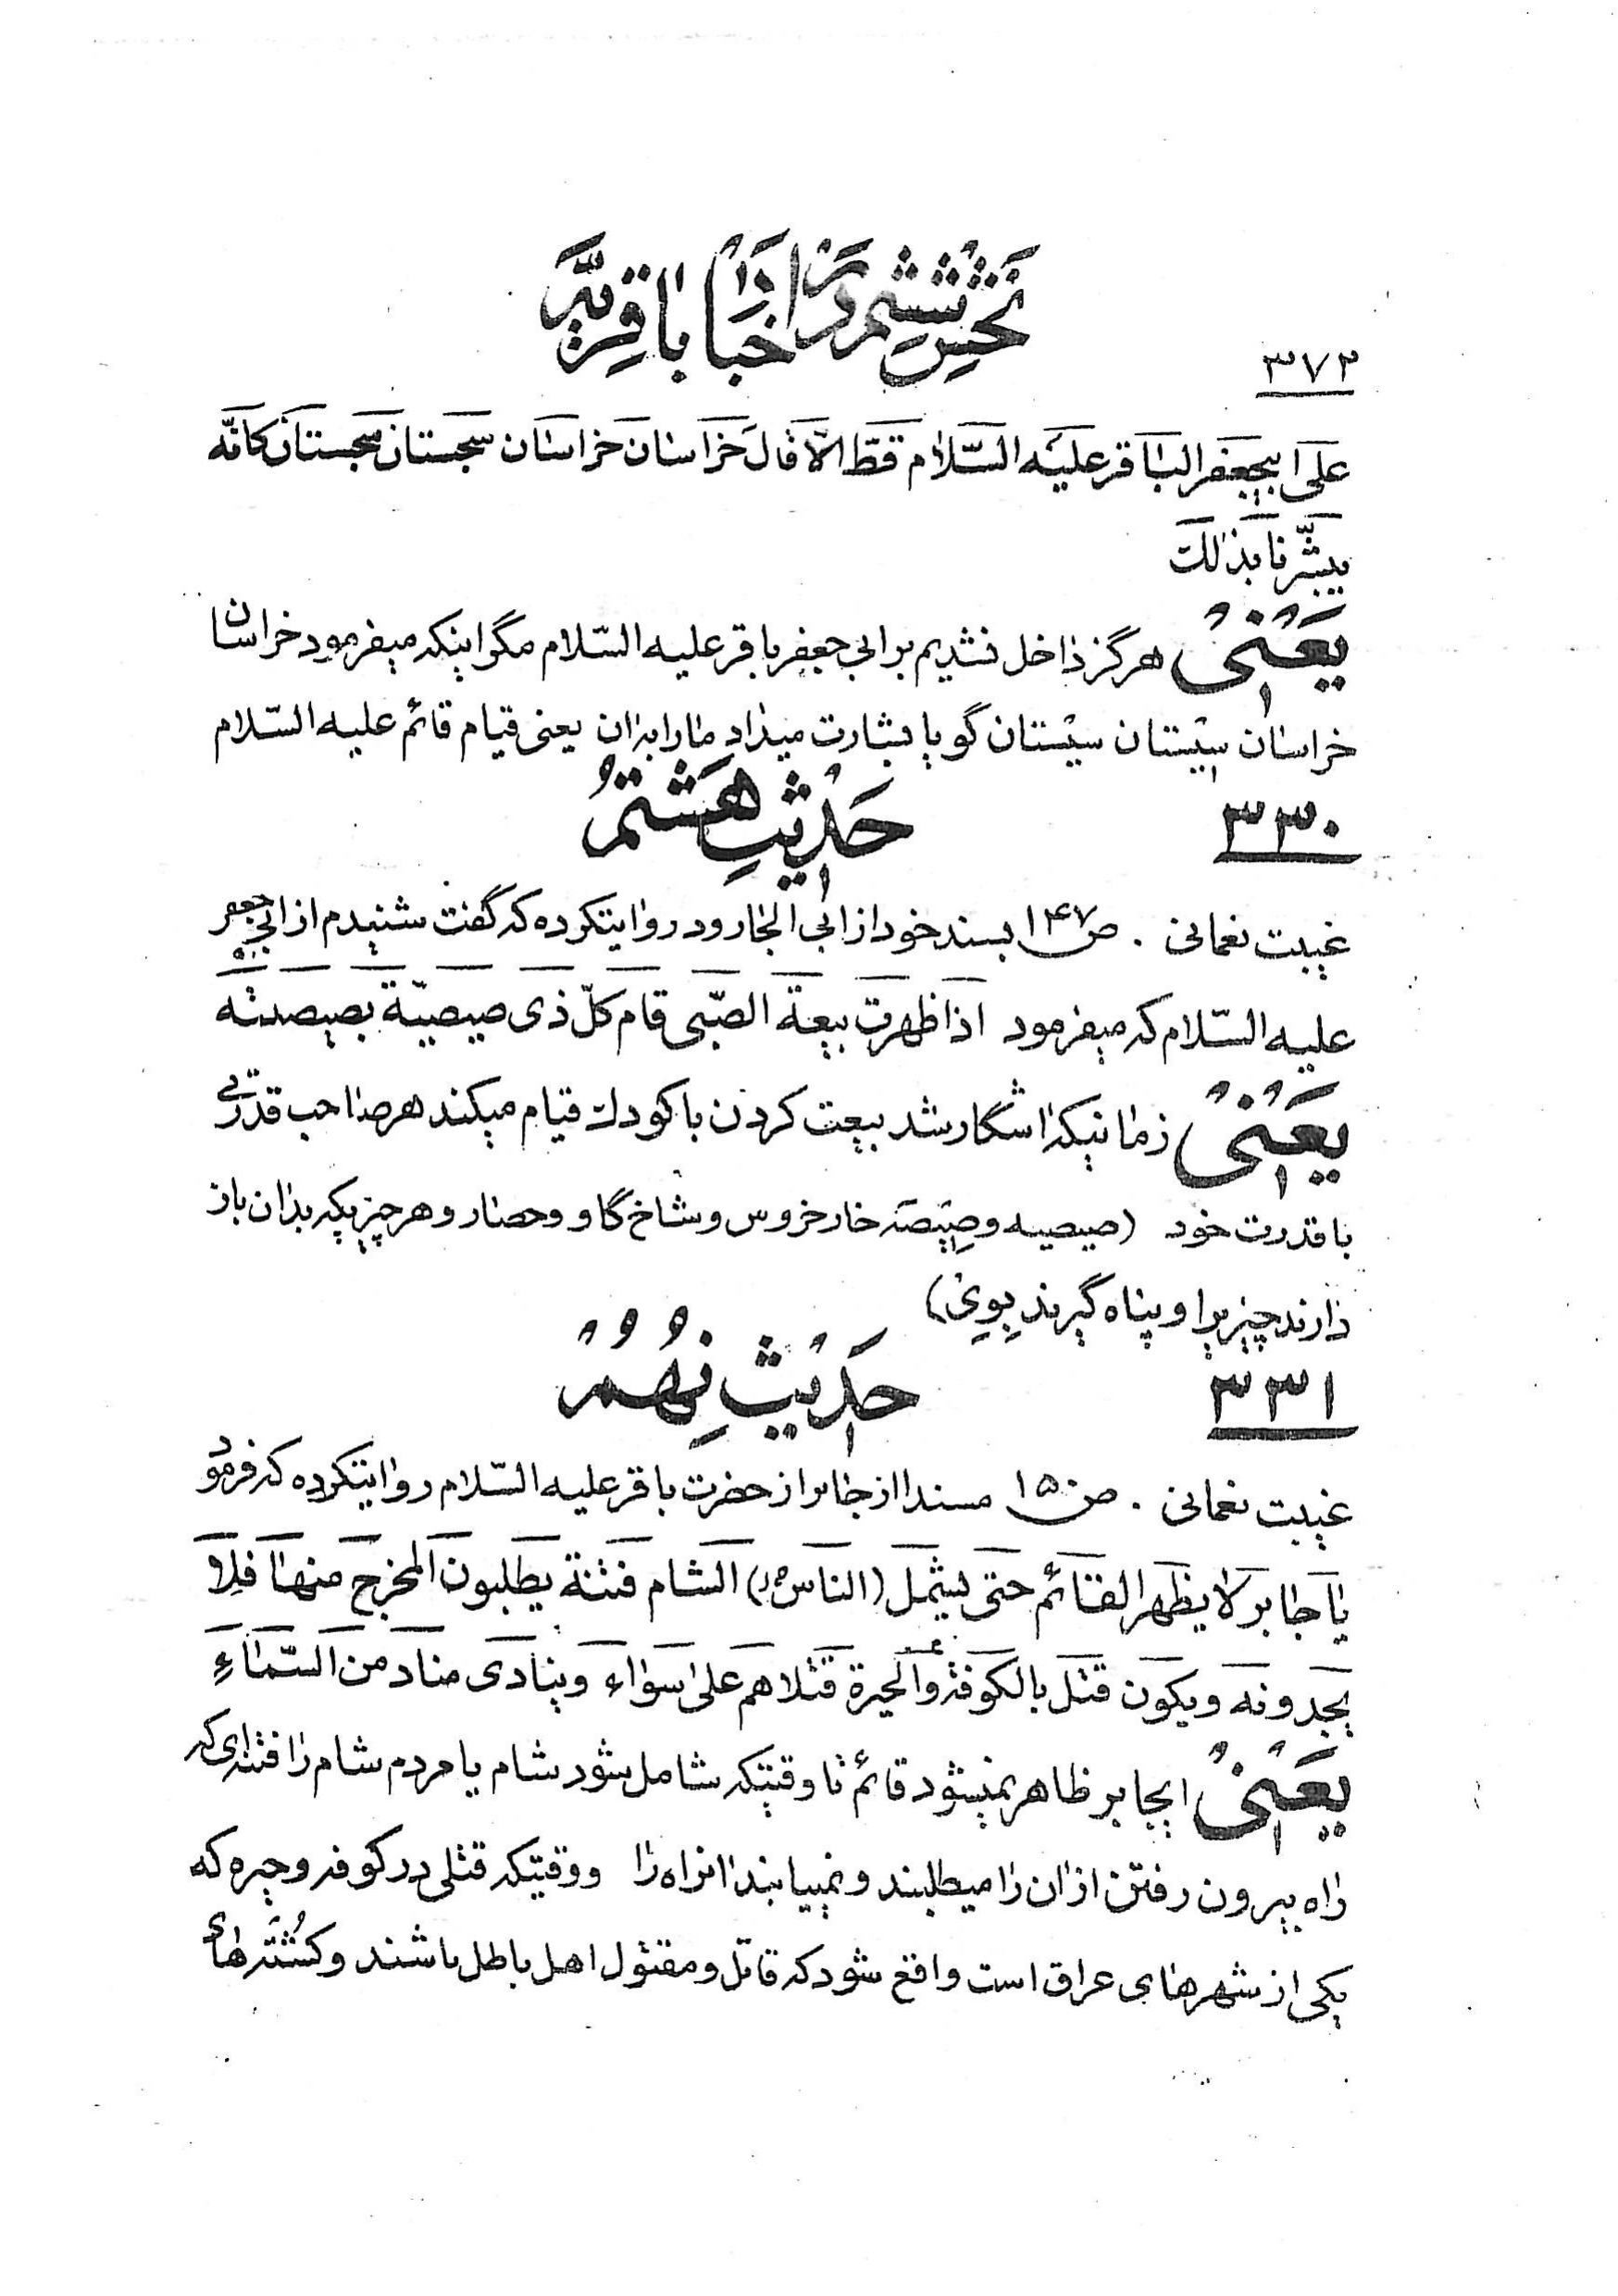 بخش ششم در اخبار باقریه
۳۷۲
علی ابیجعفر الباقر علیه السّلام قطّ الّا قال خراسان خراسان سجستان سجستان کانّه
یبشّرنا بذلک
یعنی هرگز داخل نشدیم بر ابی جعفر باقر علیه السّلام مگر اینکه میفرمود خراسان
خراسان سیستان سیستان گویا بشارت میداد ما را بدان یعنی قیام قائم علیه السّلام
۳۳۰ حدیث هشتم
غیبت نعمانی . ص ۱۴۷ بسند خود از ابی الجارود روایتکرده که گفت شنیدم از ابی جعفر
علیه السّلام که میفرمود اذا ظهرت بیعة الصّبی قام کلّ ذی صیصیّة بصیصیته
یعنی زمانیکه اشکار شد بیعت کردن با کودک قیام میکند هر صاحب قدرتی
با قدرت خود (صیصیه و صیصه خار خروس و شاخ گاو و حصار و هر چیزیکه بدان باز
دارند چیزیرا و پناه گیرند بوی)
۳۳۱ حدیث نهم
غیبت نعمانی . ص ۱۵۰ مسندا از جابر از حضرت باقر علیه السّلام روایتکرده که فرمود
یا جابر لا یظهر القائم حتی یشمل (الناس) الشام فتنة یطلبون المخرج منها فلا
یجدونه ویکون قتل بالکوفة والحیرة قتلاهم علی سواء وینادی مناد من السّماء
یعنی ایجابر ظاهر نمیشود قائم تا وقتیکه شامل شود شام یا مردم شام را فتنه‌ای که
راه بیرون رفتن از ان را میطلبند و نمییابند انراه را و وقتیکه قتلی در کوفه و حیره که
یکی از شهرهای عراق است واقع شود که قاتل و مقتول اهل باطل باشند و کشته‌های